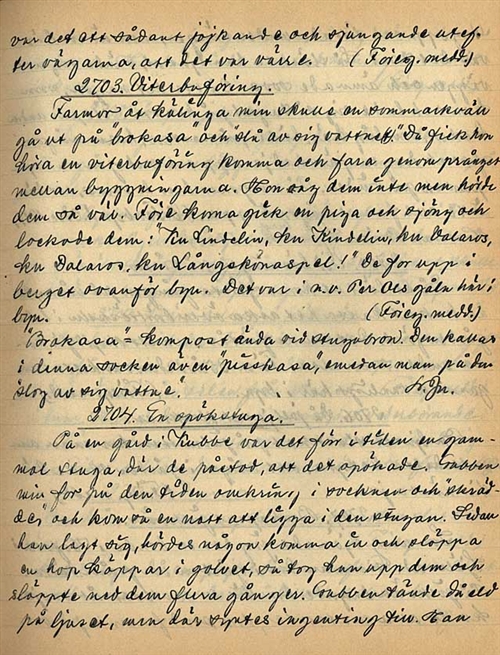 var det ett sådant jojkande och sjungande utef-
ter vägarna, att det var värre. (Föreg. medd.)
2703. Vitterbuföring.
Farmor åt källinga min skulle en sommarkväll
gå ut på "brokasa" och slå av sig vattnet. Då fick hon
höra en vitterbuföring komma och fara genom prånget
mellan byggningarna. Hon såg dem inte men hörde
dem så väl. Före korna gick en piga och sjöng och
lockade dem: "Ku Lindelin, ku Kindelin, ku Dalaros,
ku Dalaros, ku Långskönaspel!" De for upp i
berget ovanför byn. Det var i n.v. Per Ols gåln här i
byn. (Föreg. medd.)
"Brokasa" = kompost ända vid stugubron. Den kallas
i denna socken även "pisskasa", emedan man på den
"slog av sig vattne".
2704. En spökstuga.
På en gård i Kubbe var det för i tiden en gam-
mal stuga, där de påstod, att det spökade. Gubben
min for på den tiden omkring i socknen och "skräd-
de", och kom så en natt att ligga i den stugan. Sedan
han lagt sig, hördes någon komma in och släppa
en hop käppar i golvet, så tog han upp dem och
släppte ned dem flera gånger. Gubben tände då eld
på ljuset, men där syntes ingenting till. Han